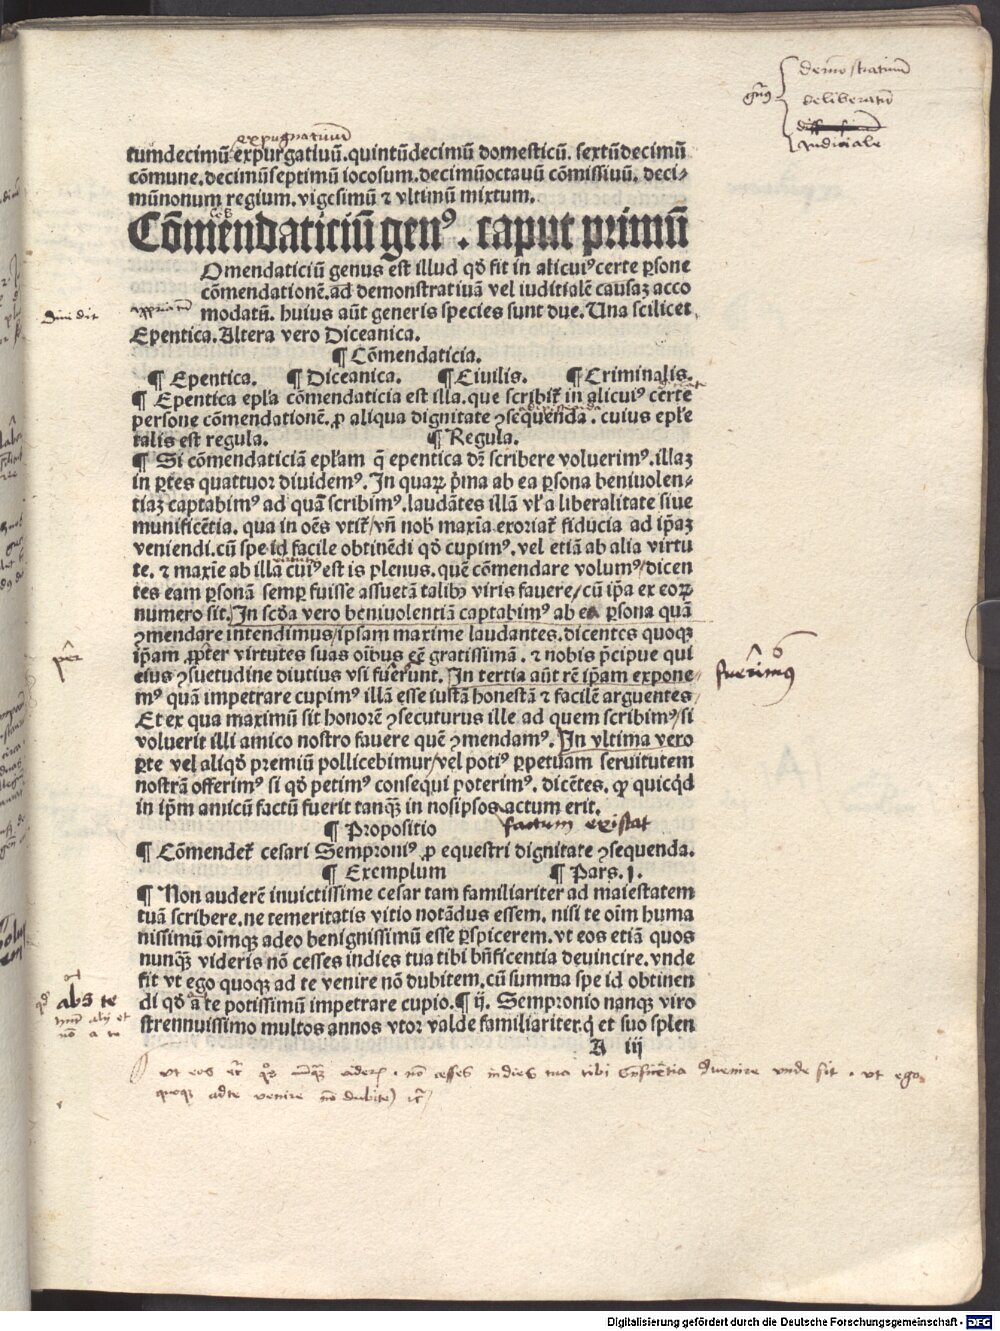 demōstratiuū
gen⁹ deliberatiū
iudiciale
expugnatiuū
tumdecimū expurgatiuū. quintūdecimū domesticū. sextūdecimū
cōmune. decimūseptimū iocosum. decimūoctauū cōmissiuū. deci-
mūnonum regium. vigesimū ⁊ vltimū mixtum.
Cōmendaticiū gen⁹. caput primū
Omendaticiū genus est illud qđ fit in alicui⁹ certe ꝑsone
cōmendationē. ad demonstratiuā vel iuditialē causaꝫ acco
diuidit
modatū. huius aūt generis species sunt due. Una scilicet
Epentica. Altera vero Diceanica.
¶ Cōmendaticia.
¶ Epentica. ¶ Diceanica. ¶ Ciuilis. ¶ Criminalis.
¶ Epentica epl'a cōmendaticia est illa. que scribit᷑ in alicui⁹ certe
persone cōmendationē. ꝓ aliqua dignitate ꝯsequenda. cuius epl'e
talis est regula. ¶ Regula.
¶ Si cōmendaticiā epl'am q̄ epentica dr̄ scribere voluerim⁹. illaꝫ
in ꝑtes quattuor diuidem⁹. In quaꝝ p̄ma ab ea ꝑsona beniuolen-
tiaꝫ captabim⁹ ad quā scribim⁹. laudātes illā vl'a liberalitate siue
munificētia. qua in oēs vtit᷑/ vn̄ nob̄ maxīa exoriat᷑ fiducia ad ip̄aꝫ
veniendi. cū spe id facile obtinēdi qđ cupim⁹. vel etiā ab alia virtu
te. ⁊ maxīe ab illa cui⁹ est is plenus. quē cōmendare volum⁹/ dicen
tes eam ꝑsonā semꝑ fuisse assuetā talib⁹ viris fauere/ cū ip̄a ex eoꝝ
numero sit. In scđa vero beniuolentiā captabim⁹ ab ea ꝑsona quā
ꝯmendare intendimus/ ipsam maxime laudantes. dicentes quoqꝫ
ip̄am ꝓpter virtutes suas oībus eē gratissimā. ⁊ nobis p̄cipue qui
eius ꝯsuetudine diutius vsi fuerunt. In tertia aūt rē ip̄am expone-
fuerim⁹
m⁹ quā impetrare cupim⁹ illā esse iustā honestā ⁊ facilē arguentes/
Et ex qua maximū sit honorē ꝯsecuturus ille ad quem scribim⁹/ si
voluerit illi amico nostro fauere quē ꝯmendam⁹. In vltima vero
ꝑte vel aliqđ premiū pollicebimur/ vel poti⁹ ꝑpetuam seruitutem
nostrā offerim⁹ si qđ petim⁹ consequi poterim⁹. dicētes. ꝙ quicqđ
in ip̄m amicū factū fuerit tanqꝫ in nosipsos actum erit.
factum existat
¶ Propositio
¶ Cōmendet᷑ cesari Semproni⁹ ꝓ equestri dignitate ꝯsequenda.
¶ Exemplum ¶ Pars. j.
¶ Non auderē inuictissime cesar tam familiariter ad maiestatem
tuā scribere. ne temeritatis vitio notādus essem. nisi te oīm huma
nissimū oīmqꝫ adeo benignissimū esse ꝑspicerem. vt eos etiā quos
nunqꝫ videris nō cesses indies tua tibi bn̄ficentia deuincire. vnde
fit vt ego quoqꝫ ad te venire nō dubitem. cū summa spe id obtinen
di qđ a te potissimū impetrare cupio. ¶ ij. Sempronio nanqꝫ viro
abs te
strennuissimo multos annos vtor valde familiariter. q̄ et suo splen
A iij
vt eos
quoqꝫ ad te venire nō dubitē
Digitalisierung gefördert durch die Deutsche Forschungsgemeinschaft - DFG